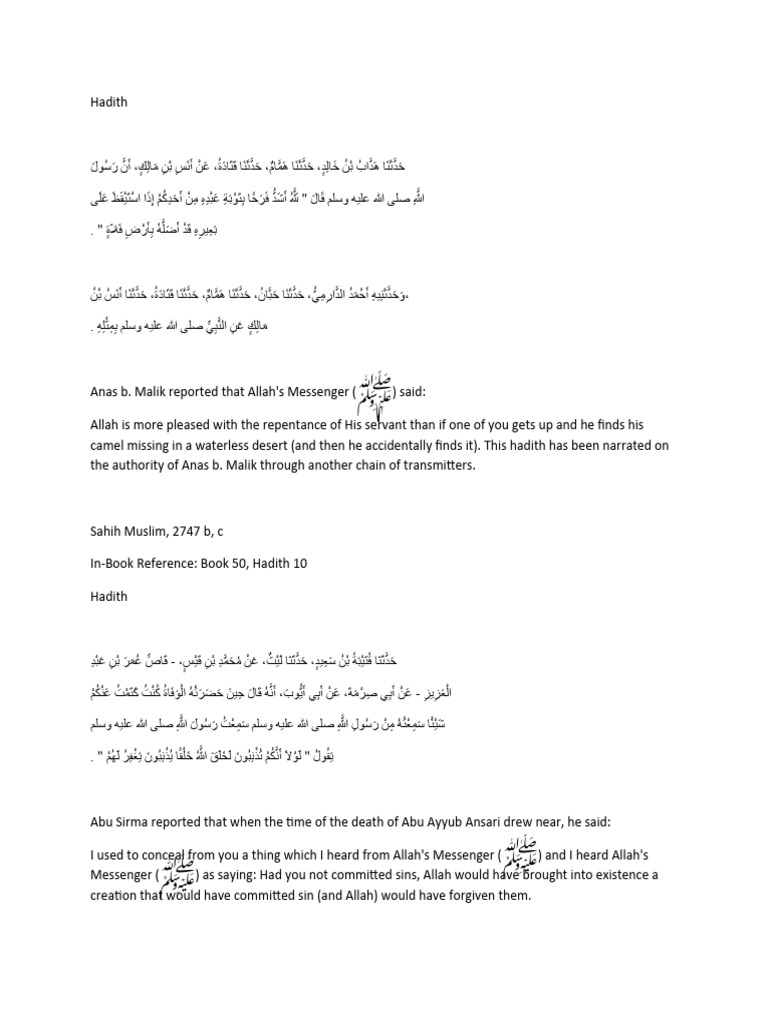 Hadith
حَدَّثَنَا هَدَّابُ بْنُ خَالِدٍ، حَدَّثَنَا هَمَّامٌ، حَدَّثَنَا قَتَادَةُ، عَنْ أَنَسِ بْنِ مَالِكٍ، أَنَّ رَسُولَ
اللَّهِ صلى الله عليه وسلم قَالَ " لَلَّهُ أَشَدُّ فَرَحًا بِتَوْبَةِ عَبْدِهِ مِنْ أَحَدِكُمْ إِذَا اسْتَيْقَظَ عَلَى
بَعِيرِهِ قَدْ أَضَلَّهُ بِأَرْضِ فَلاَةٍ " .
وَحَدَّثَنِيهِ أَحْمَدُ الدَّارِمِيُّ، حَدَّثَنَا حَبَّانُ، حَدَّثَنَا هَمَّامٌ، حَدَّثَنَا قَتَادَةُ، حَدَّثَنَا أَنَسُ بْنُ،
مَالِكٍ عَنِ النَّبِيِّ صلى الله عليه وسلم بِمِثْلِهِ .
Anas b. Malik reported that Allah's Messenger (ﷺ) said:
Allah is more pleased with the repentance of His servant than if one of you gets up and he finds his
camel missing in a waterless desert (and then he accidentally finds it). This hadith has been narrated on
the authority of Anas b. Malik through another chain of transmitters.
Sahih Muslim, 2747 b, c
In-Book Reference: Book 50, Hadith 10
Hadith
حَدَّثَنَا قُتَيْبَةُ بْنُ سَعِيدٍ، حَدَّثَنَا لَيْثٌ، عَنْ مُحَمَّدِ بْنِ قَيْسٍ، - قَاصِّ عُمَرَ بْنِ عَبْدِ
الْعَزِيزِ - عَنْ أَبِي صِرْمَةَ، عَنْ أَبِي أَيُّوبَ، أَنَّهُ قَالَ حِينَ حَضَرَتْهُ الْوَفَاةُ كُنْتُ كَتَمْتُ عَنْكُمْ
شَيْئًا سَمِعْتُهُ مِنْ رَسُولِ اللَّهِ صلى الله عليه وسلم سَمِعْتُ رَسُولَ اللَّهِ صلى الله عليه وسلم
يَقُولُ " لَوْلاَ أَنَّكُمْ تُذْنِبُونَ لَخَلَقَ اللَّهُ خَلْقًا يُذْنِبُونَ يَغْفِرُ لَهُمْ " .
Abu Sirma reported that when the time of the death of Abu Ayyub Ansari drew near, he said:
I used to conceal from you a thing which I heard from Allah's Messenger (ﷺ) and I heard Allah's
Messenger (ﷺ) as saying: Had you not committed sins, Allah would have brought into existence a
creation that would have committed sin (and Allah) would have forgiven them.